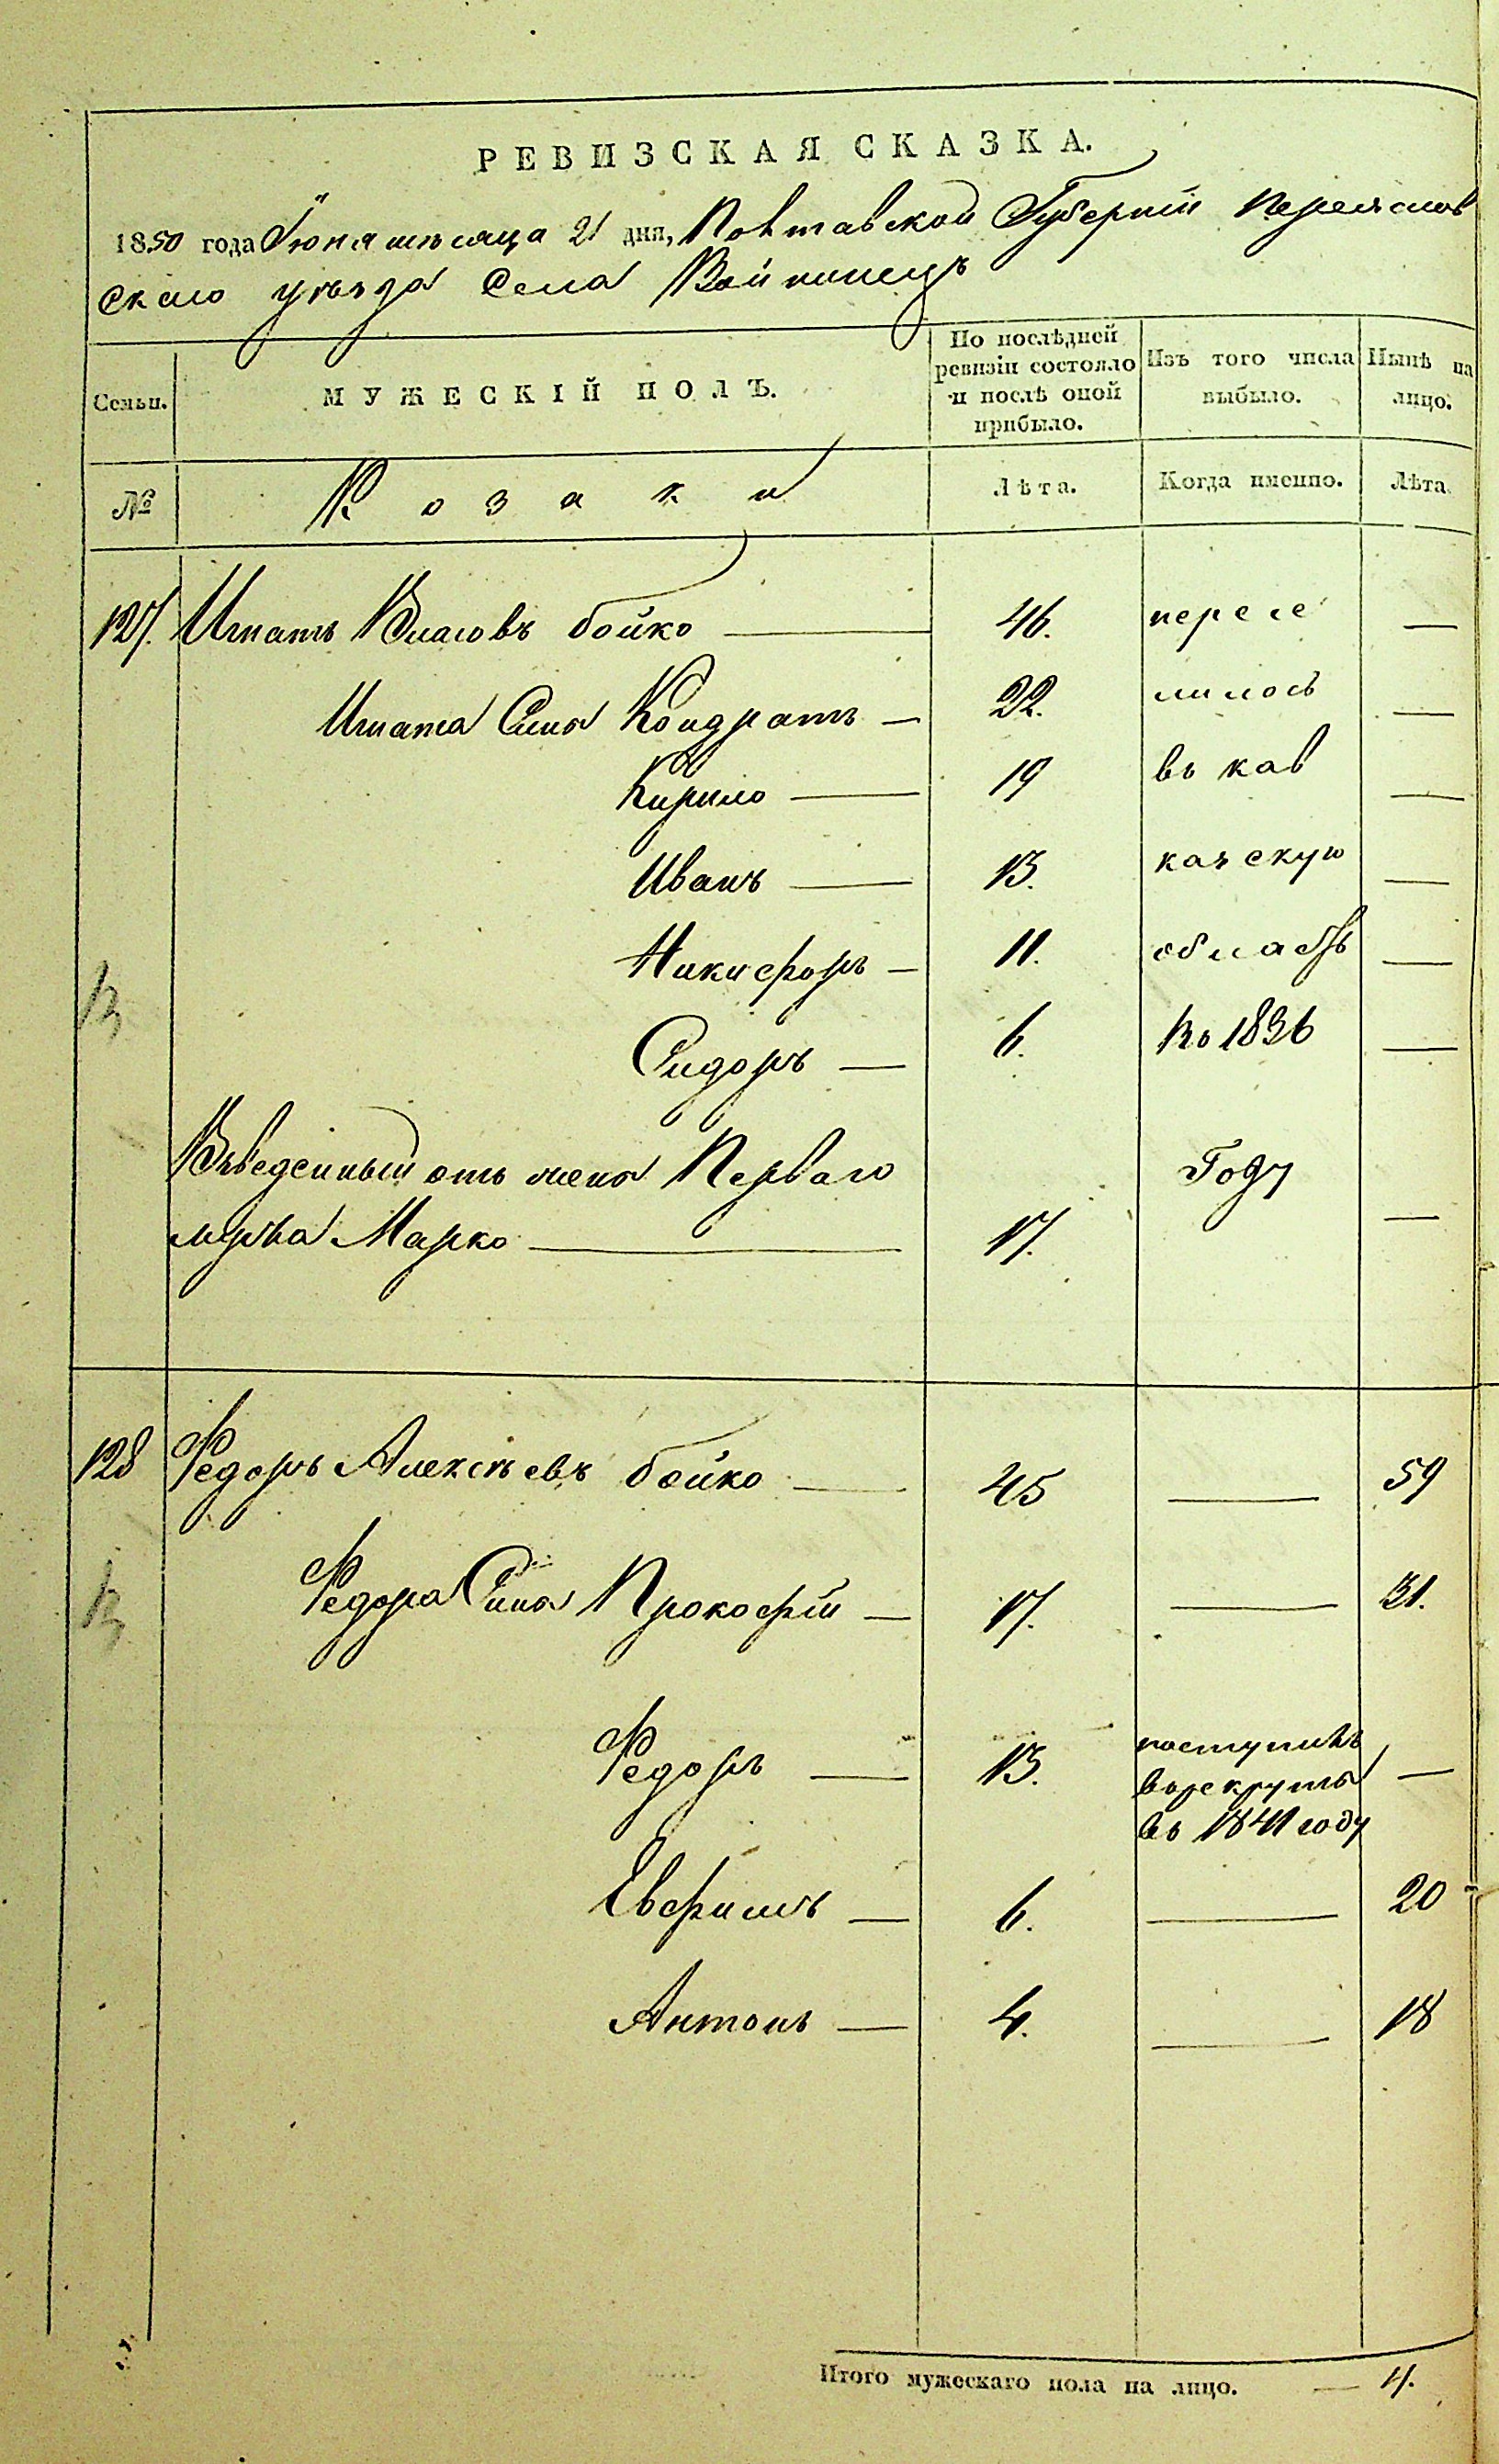 РЕВИЗСКАЯ СКАЗКА.
1850 года Іюня мѣсяца 21 дня, Полтавской Губерніи Переяслов
скаго уѣзда Села Войтинецъ
Семьи. МУЖЕСКІЙ ПОЛЪ. По послѣдней ревизіи состояло и послѣ оной прибыло. Изъ того числа выбыло. Нынѣ на лицо.
№ Козаки Лѣта. Когда именно. Лѣта.
127. Игнатъ Власовъ бойко — 46. пересе —
Игната Сына Кондратъ — 22. лилось —
Кирило — 19 въ кав —
Иванъ — 13. казскую —
Никифоръ — 11. область —
Сидоръ — 6. Въ 1836 —
отъ жены Перваго Году
мужа Марко — 17. —
128 Федоръ Алексѣевъ бойко — 45 — 59
Федора Сына Прокофій — 17. — 31.
Федоръ — 13. поступилъ —
врекруты
въ 1841 году
Евфимъ — 6. — 20
Антонъ — 4. — 18
Итого мужескаго пола на лицо. — 4.